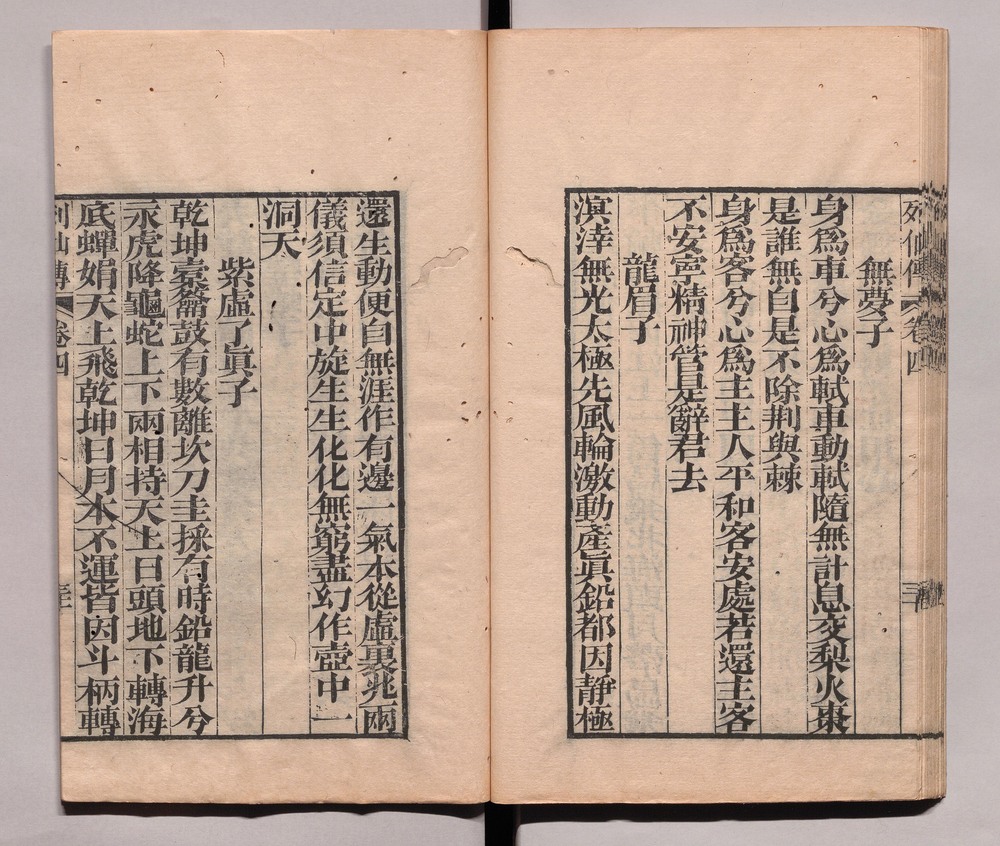 列仙傳 卷四
無夢子
身爲車兮心爲軾車動軾隨無計息交梨火棗
是誰無自是不除荆與棘
身爲客兮心爲主主人平和客安處若還主客
不安寍精神管是辭君去
龍眉子
溟涬無光太極先風輪激動產眞鉛都因靜極
還生動便自無涯作有邊一氣本從虛裏兆兩
儀須信定中旋生生化化無窮盡幻作壺中一
洞天
紫虛了眞子
乾坤橐籥鼓有數離坎刀圭採有時鉛龍升兮
汞虎降龜蛇上下兩相持天上日頭地下轉海
底蟬娟天上飛乾坤日月本不運皆因斗柄轉
列仙傳 卷四